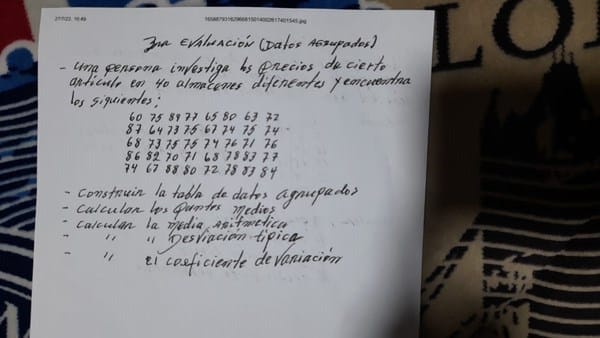 27/7/22, 16:49
1658879316296681501400261 7401545.jpg
3ra EVALUACIÓN (DATOS AGRUPADOS)
- Una persona investiga los precios de cierto
artículo en 40 almacenes diferentes y encuentra
los siguientes:
60 75 89 77 65 80 63 72
87 64 73 75 67 74 75 74
68 73 75 75 74 76 71 76
86 82 70 71 68 78 83 77
74 67 88 80 72 78 83 84
- Construir la tabla de datos agrupados
- calcular los puntos medios
- calcular la media aritmetica
- " " Desviación típica
- " el coeficiente de variación
LON